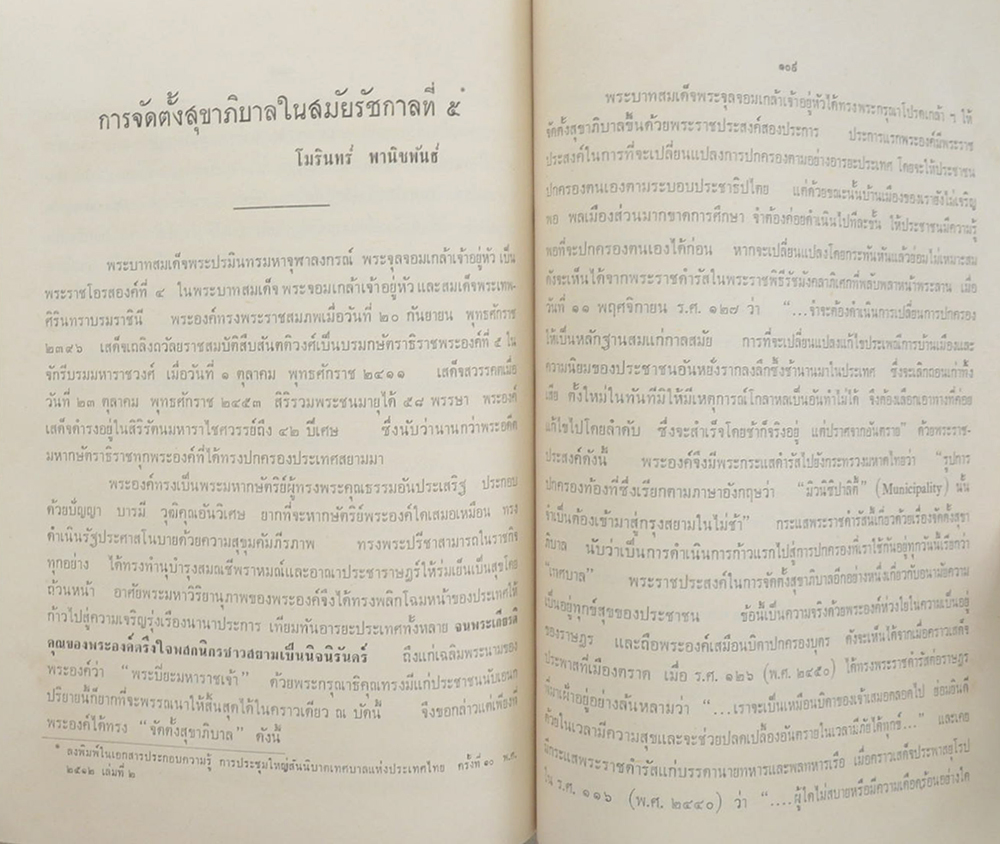 การจัดตั้งสุขาภิบาลในสมัยรัชกาลที่ ๕*
โมรินทร์ พานิชพันธ์
พระบาทสมเด็จพระปรมินทรมหาจุฬาลงกรณ์ พระจุลจอมเกล้าเจ้าอยู่หัว เป็น
พระราชโอรสองค์ที่ ๔ ในพระบาทสมเด็จ พระจอมเกล้าเจ้าอยู่หัว และสมเด็จพระเทพ-
ศิรินทราบรมราชินี พระองค์ทรงพระราชสมภพเมื่อวันที่ ๒๐ กันยายน พุทธศักราช
๒๓๙๖ เสด็จเถลิงถวัลยราชสมบัติสืบสันตติวงศ์เป็นบรมกษัตราธิราชพระองค์ที่ ๕ ใน
จักรีบรมมหาราชวงศ์ เมื่อวันที่ ๑ ตุลาคม พุทธศักราช ๒๔๑๑ เสด็จสวรรคตเมื่อ
วันที่ ๒๓ ตุลาคม พุทธศักราช ๒๔๕๓ สิริรวมพระชนมายุได้ ๕๘ พรรษา พระองค์
เสด็จดำรงอยู่ในสิริรัตนมหาราไชศวรรย์ถึง ๔๒ ปีเศษ ซึ่งนับว่านานกว่าพระอดีต
มหากษัตราธิราชทุกพระองค์ที่ได้ทรงปกครองประเทศสยามมา
พระองค์ทรงเป็นพระมหากษัตริย์ผู้ทรงพระคุณธรรมอันประเสริฐ ประกอบ
ด้วยปัญญา บารมี วุฒิคุณอันวิเศษ ยากที่จะหากษัตริย์พระองค์ใดเสมอเหมือน ทรง
ดำเนินรัฐประศาสโนบายด้วยความสุขุมคัมภีรภาพ ทรงพระปรีชาสามารถในราชกิจ
ทุกอย่าง ได้ทรงทำนุบำรุงสมณชีพราหมณ์และอาณาประชาราษฎร์ให้ร่มเย็นเป็นสุขโดย
ถ้วนหน้า อาศัยพระมหาวิริยานุภาพของพระองค์จึงได้ทรงพลิกโฉมหน้าของประเทศให้
ก้าวไปสู่ความเจริญรุ่งเรืองนานาประการ เทียมทันอารยะประเทศทั้งหลาย จนพระเกียรติ
คุณของพระองค์ตรึงใจพสกนิกรชาวสยามเป็นนิจนิรันดร์ ถึงแก่เฉลิมพระนามของ
พระองค์ว่า “พระปิยะมหาราชเจ้า” ด้วยพระกรุณาธิคุณทรงมีแก่ประชาชนนับเอนก
ปริยายนี้ก็ยากที่จะพรรณนาให้สิ้นสุดได้ในคราวเดียว ณ บัดนี้ จึงขอกล่าวแต่เพียงที่
พระองค์ได้ทรง “จัดตั้งสุขาภิบาล” ดังนี้
* ลงพิมพ์ในเอกสารประกอบความรู้ การประชุมใหญ่สันนิบาตเทศบาลแห่งประเทศไทย ครั้งที่ ๑๐ พ.ศ.
๒๕๑๒ เล่มที่ ๒
๑๐๙
พระบาทสมเด็จพระจุลจอมเกล้าเจ้าอยู่หัวได้ทรงพระกรุณาโปรดเกล้า ฯ ให้
จัดตั้งสุขาภิบาลขึ้นด้วยพระราชประสงค์สองประการ ประการแรกพระองค์มีพระราช
ประสงค์ในการที่จะเปลี่ยนแปลงการปกครองตามอย่างอารยะประเทศ โดยจะให้ประชาชน
ปกครองตนเองตามระบอบประชาธิปไตย แต่ด้วยขณะนั้นบ้านเมืองของเรายังไม่เจริญ
พอ พลเมืองส่วนมากขาดการศึกษา จำต้องค่อยดำเนินไปทีละขั้น ให้ประชาชนมีความรู้
พอที่จะปกครองตนเองได้ก่อน หากจะเปลี่ยนแปลงโดยกระทันหันแล้วย่อมไม่เหมาะสม
ดังจะเห็นได้จากพระราชดำรัสในพระราชพิธีรัชมังคลาภิเศกที่พลับพลาหน้าพระลาน เมื่อ
วันที่ ๑๑ พฤศจิกายน ร.ศ. ๑๒๗ ว่า “...จำจะต้องดำเนินการเปลี่ยนการปกครอง
ให้เป็นหลักฐานสมแก่กาลสมัย การที่จะเปลี่ยนแปลงแก้ไขประเพณีการบ้านเมืองและ
ความนิยมของประชาชนอันหยั่งรากลงลึกซึ้งช้านานมาในประเทศ ซึ่งจะเลิกถอนเก่าทิ้ง
เสีย ตั้งใหม่ในทันทีมิให้มีเหตุการณ์โกลาหลเป็นอันทำไม่ได้ จึงต้องเลือกเอาทางที่ค่อย
แก้ไขไปโดยลำดับ ซึ่งจะสำเร็จโดยช้าก็จริงอยู่ แต่ปราศจากอันตราย” ด้วยพระราช-
ประสงค์ดังนี้ พระองค์จึงมีพระกระแสดำรัสไปยังกระทรวงมหาดไทยว่า “รูปการ
ปกครองท้องที่ซึ่งเรียกตามภาษาอังกฤษว่า “มิวนิซิปาลิตี้” (Municipality) นั้น
จำเป็นต้องเข้ามาสู่กรุงสยามในไม่ช้า” กระแสพระราชดำรัสนี้เกี่ยวด้วยเรื่องจัดตั้งสุขา
ภิบาล นับว่าเป็นการดำเนินการก้าวแรกไปสู่การปกครองที่เราใช้กันอยู่ทุกวันนี้เรียกว่า
“เทศบาล” พระราชประสงค์ในการจัดตั้งสุขาภิบาลอีกอย่างหนึ่งเกี่ยวกับอนามัยความ
เป็นอยู่ทุกข์สุขของประชาชน ข้อนี้เป็นความจริงด้วยพระองค์ห่วงใยในความเป็นอยู่
ของราษฎร และถือพระองค์เสมือนบิดาปกครองบุตร ดังจะเห็นได้จากเมื่อคราวเสด็จ
ประพาสที่เมืองตราด เมื่อ ร.ศ. ๑๒๖ (พ.ศ. ๒๔๕๐) ได้ทรงพระราชดำรัสต่อราษฎร
ที่มาเฝ้าอยู่อย่างล้นหลามว่า “...เราจะเป็นเหมือนบิดาของเจ้าเสมอตลอดไป ย่อมยินดี
ด้วยในเวลามีความสุขและจะช่วยปลดเปลื้องอันตรายในเวลามีภัยได้ทุกข์...” และเคย
มีกระแสพระราชดำรัสแก่บรรดานายทหารและพลทหารเรือ เมื่อคราวเสด็จประพาสยุโรป
ใน ร.ศ. ๑๑๖ (พ.ศ. ๒๔๔๐) ว่า “....ผู้ใดไม่สบายหรือมีความเดือดร้อนอย่างใด